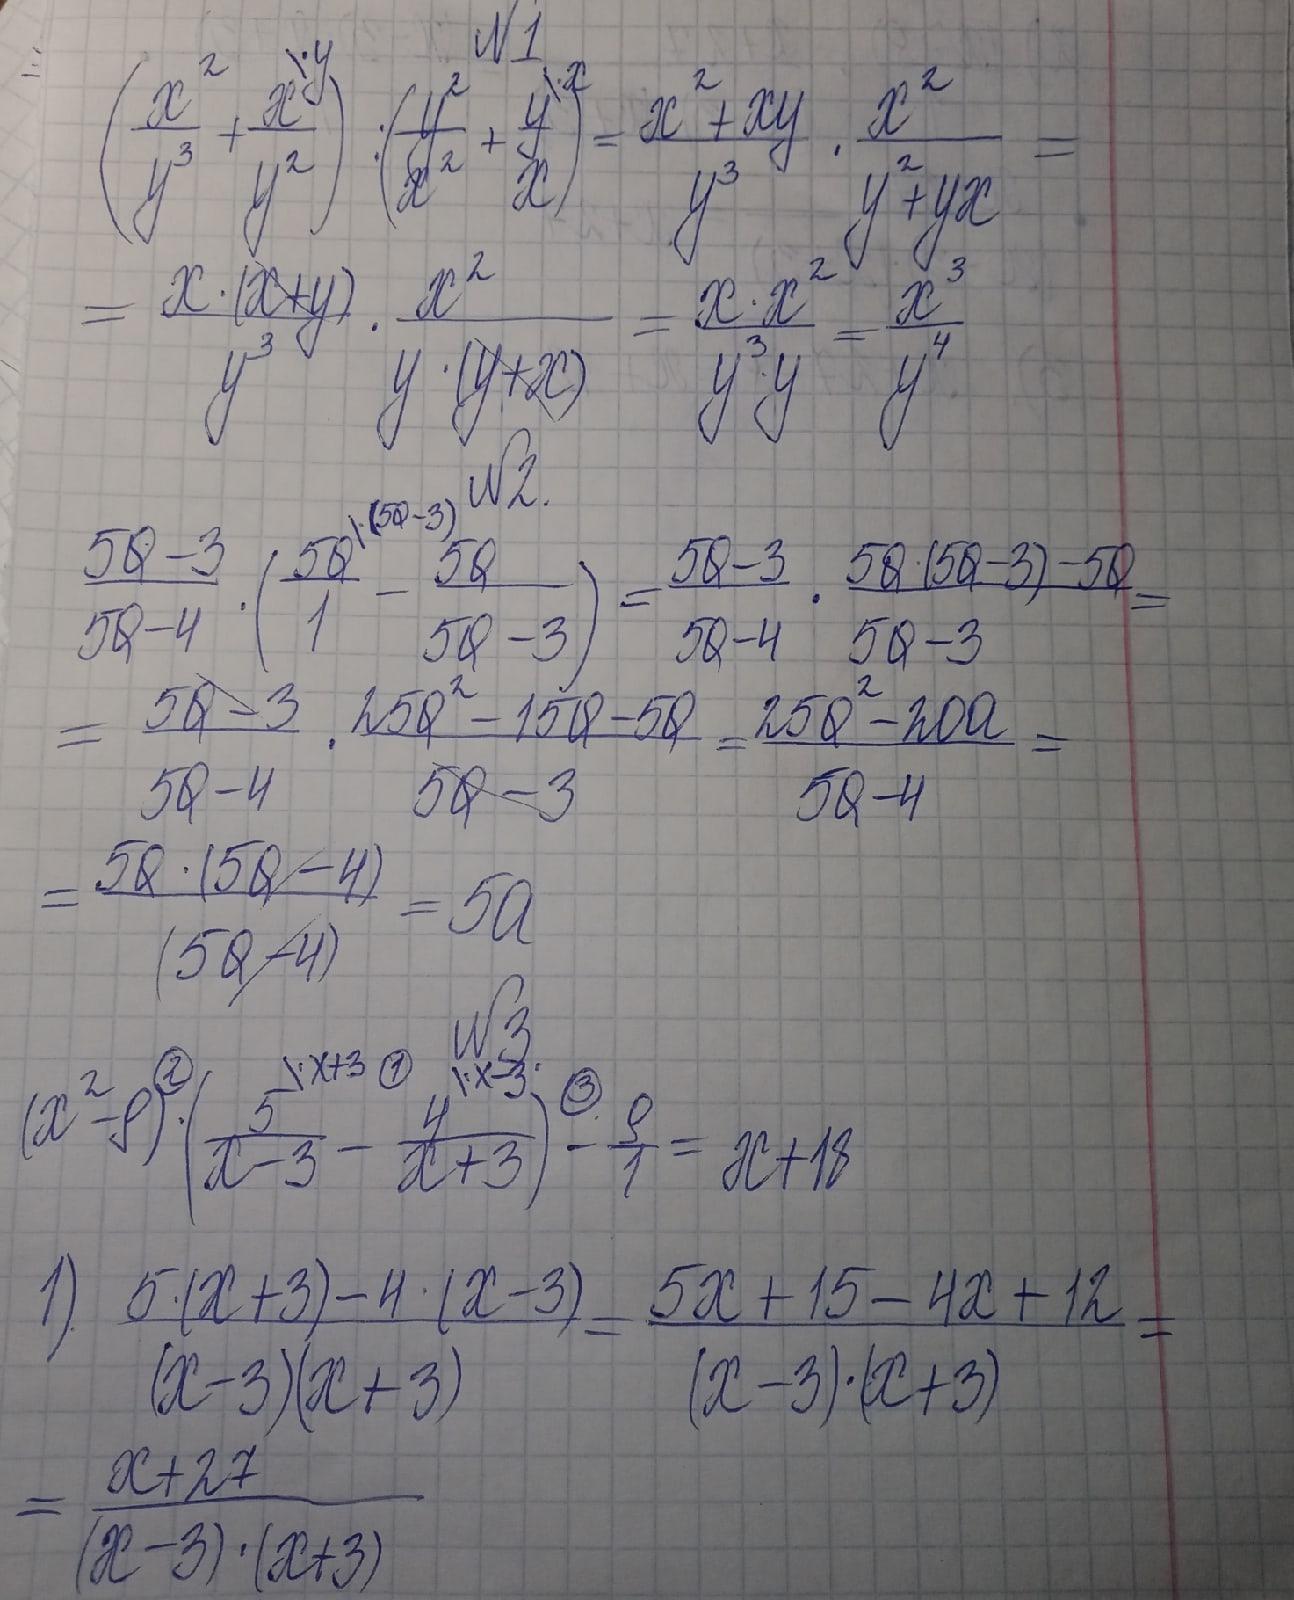 N1
(x²/y³ + x\·y/y²) : (y²/x² + y\·x/x) = x²+xy/y³ · x²/y²+yx =
= x·(x+y)/y³ · x²/y·(y+x) = x·x²/y³·y = x³/y⁴
N2.
5a-3/5a-4 · (5a\·(5a-3)/1 - 5a/5a-3) = 5a-3/5a-4 · 5a·(5a-3)-5a/5a-3 =
= 5a-3/5a-4 · 25a²-15a-5a/5a-3 = 25a²-20a/5a-4 =
= 5a·(5a-4)/(5a-4) = 5a
N3
(x²-9) ② · (5\·x+3/x-3 - ① 4\·x-3/x+3) ③ - 9/1 = x+18
1) 5·(x+3)-4·(x-3)/(x-3)(x+3) = 5x+15-4x+12/(x-3)·(x+3) =
= x+27/(x-3)·(x+3)